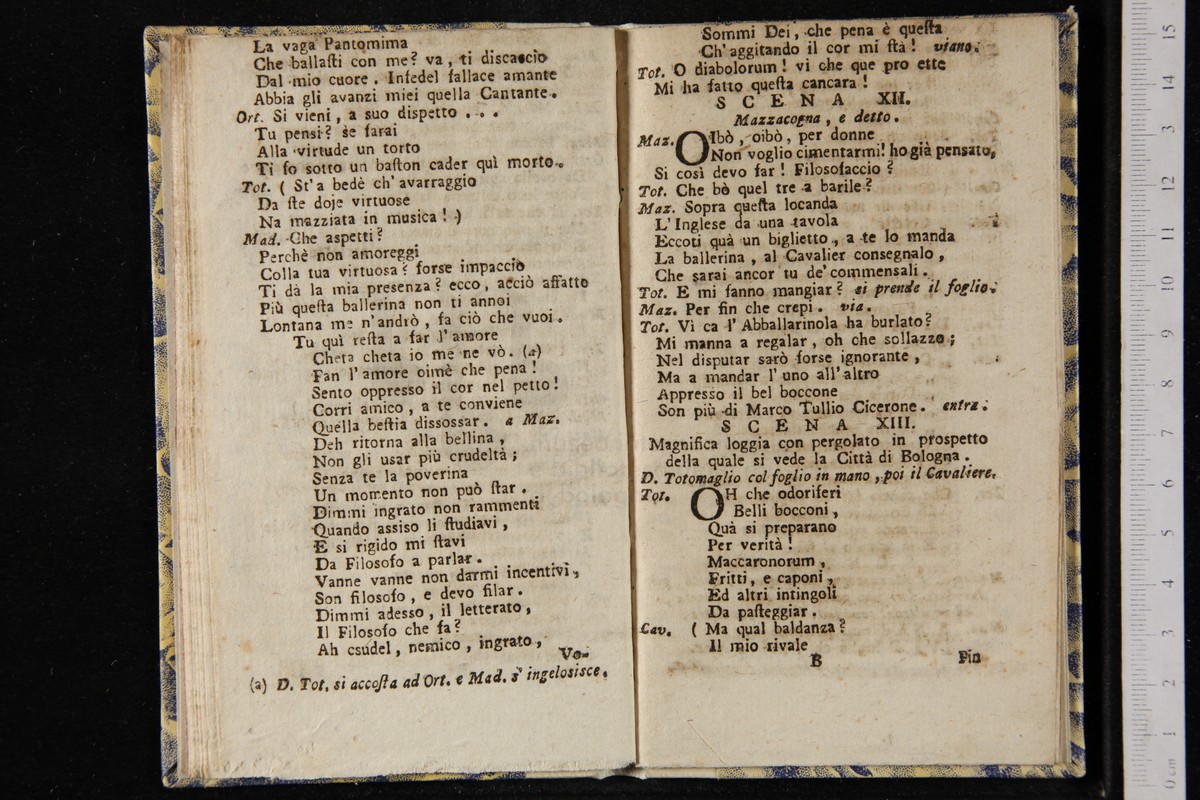 La vaga Pantomima
Che ballaſti con me? va, ti diſcaccio
Dal mio cuore. Infedel fallace amante
Abbia gli avanzi miei quella Cantante.
Ort. Si vieni, a suo diſpetto . . .
Tu penſi? se farai
Alla virtude un torto
Ti fo sotto un baſton cader quì morto.
Tot. ( St'a bedè ch'avarraggio
Da ſte doje virtuose
Na mazziata in muſica! )
Mad. Che aſpetti?
Perchè non amoreggi
Colla tua virtuosa? forse impaccio
Ti dà la mia presenza? ecco, acciò affatto
Più queſta ballerina non ti annoi
Lontana me n'andrò, fa ciò che vuoi.
Tu quì reſta a far l'amore
Cheta cheta io me ne vò. (a)
Fan l'amore oimè che pena!
Sento oppresso il cor nel petto!
Corri amico, a te conviene
Quella beſtia dissossar. a Maz.
Deh ritorna alla bellina,
Non gli usar più crudeltà;
Senza te la poverina
Un momento non può ſtar.
Dimmi ingrato non rammenti
Quando assiso li ſtudiavi,
E si rigido mi ſtavi
Da Filosofo a parlar.
Vanne vanne non darmi incentivi,
Son filosofo, e devo filar.
Dimmi adesso, il letterato,
Il Filosofo che fa?
Ah csudel, nemico, ingrato,
Vo-
(a) D. Tot. si accoſta ad Ort. e Mad. s'ingelosisce.
Sommi Dei, che pena è queſta
Ch'aggitando il cor mi ſtà! viano.
Tot. O diabolorum! vi che que pro ette
Mi ha fatto queſta cancara!
SCENA XII.
Mazzacogna, e detto.
Maz. OIbò, oibò, per donne
Non voglio cimentarmi! ho già pensato,
Si così devo far! Filosofaccio?
Tot. Che bò quel tre a barile?
Maz. Sopra queſta locanda
L'Inglese da una tavola
Eccoti quà un biglietto, a te lo manda
La ballerina, al Cavalier consegnalo,
Che sarai ancor tu de' commensali.
Tot. E mi fanno mangiar? si prende il foglio.
Maz. Per fin che crepi. via.
Tot. Vi ca l'Abballarinola ha burlato?
Mi manna a regalar, oh che sollazzo;
Nel disputar sarò forse ignorante,
Ma a mandar l'uno all'altro
Appresso il bel boccone
Son più di Marco Tullio Cicerone. entra.
SCENA XIII.
Magnifica loggia con pergolato in prospetto
della quale si vede la Città di Bologna.
D. Totomaglio col foglio in mano, poi il Cavaliere.
Tot. OH che odoriferi
Belli bocconi,
Quà si preparano
Per verità!
Maccaronorum,
Fritti, e caponi,
Ed altri intingoli
Da paſteggiar.
Cav. ( Ma qual baldanza?
Il mio rivale
B Fin